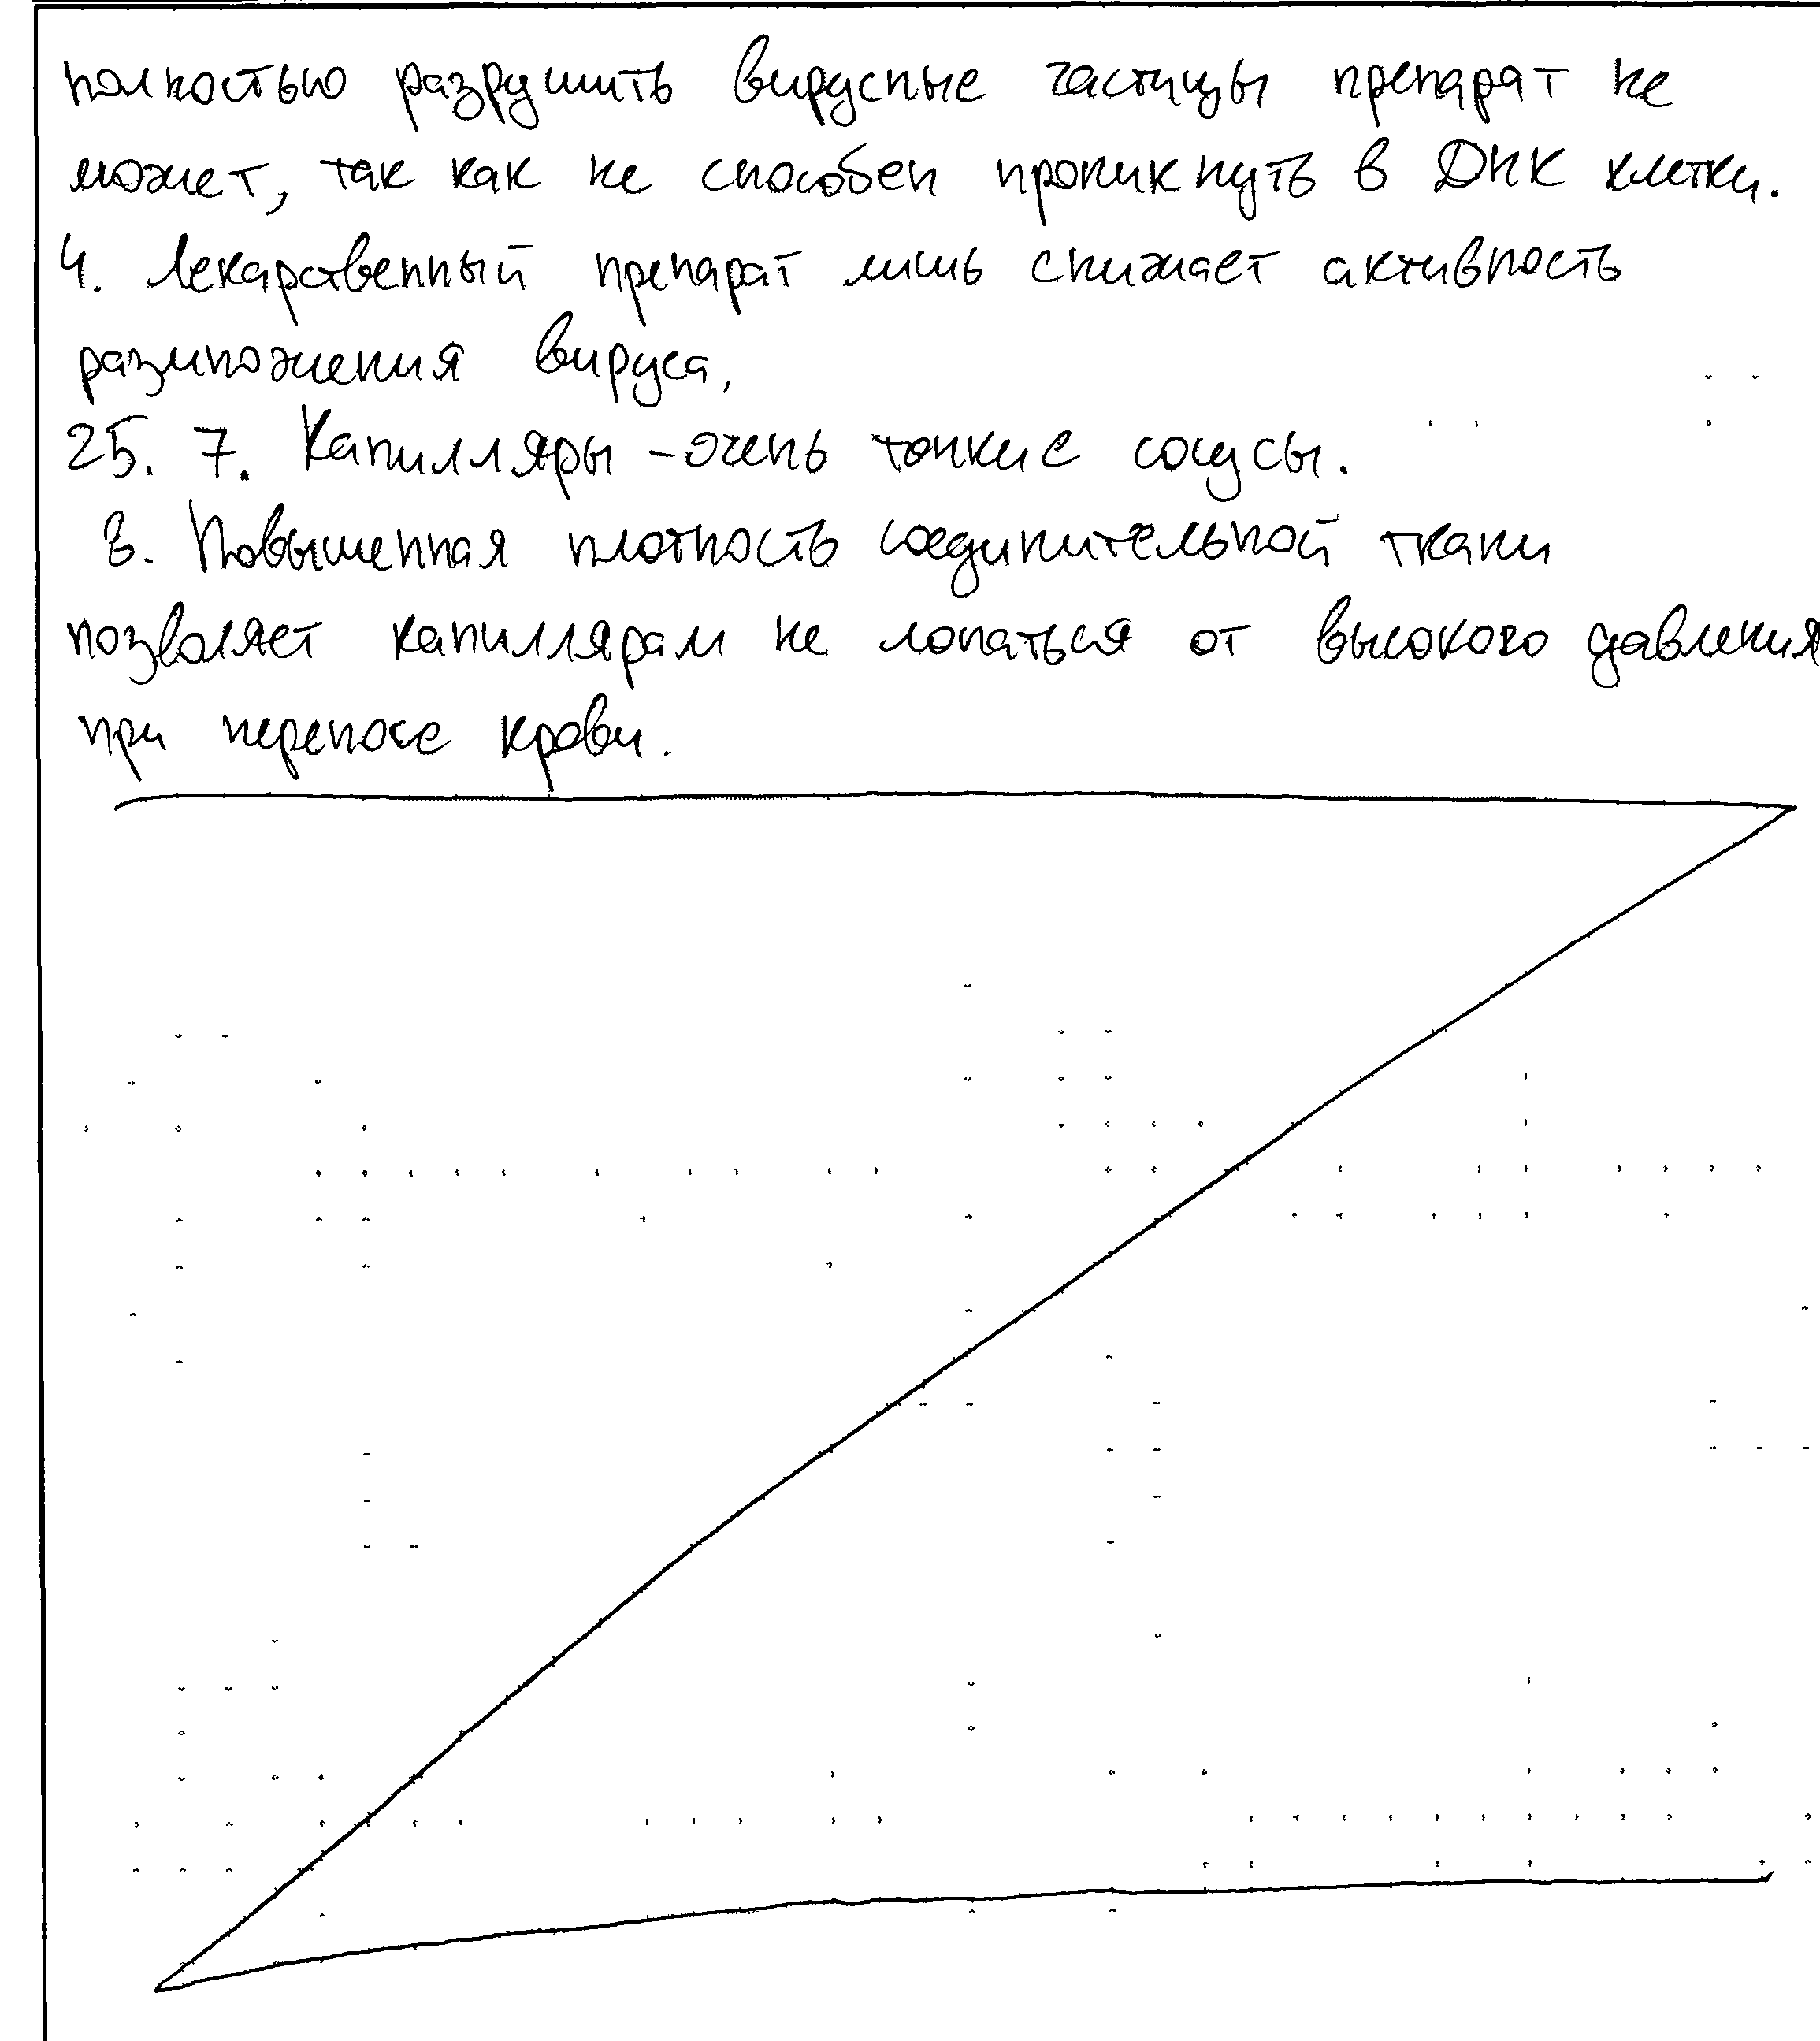 полностью разрушить вирусные частицы препарат не
может, так как не способен проникнуть в ДНК клетки.
4. Лекарственный препарат лишь снижает активность
размножения вируса,
25. 7. Капилляры - очень тонкие сосусы.
8. Повышенная плотность соединительной ткани
позволяет капиллярам не лопаться от высокого давления
при переносе крови.